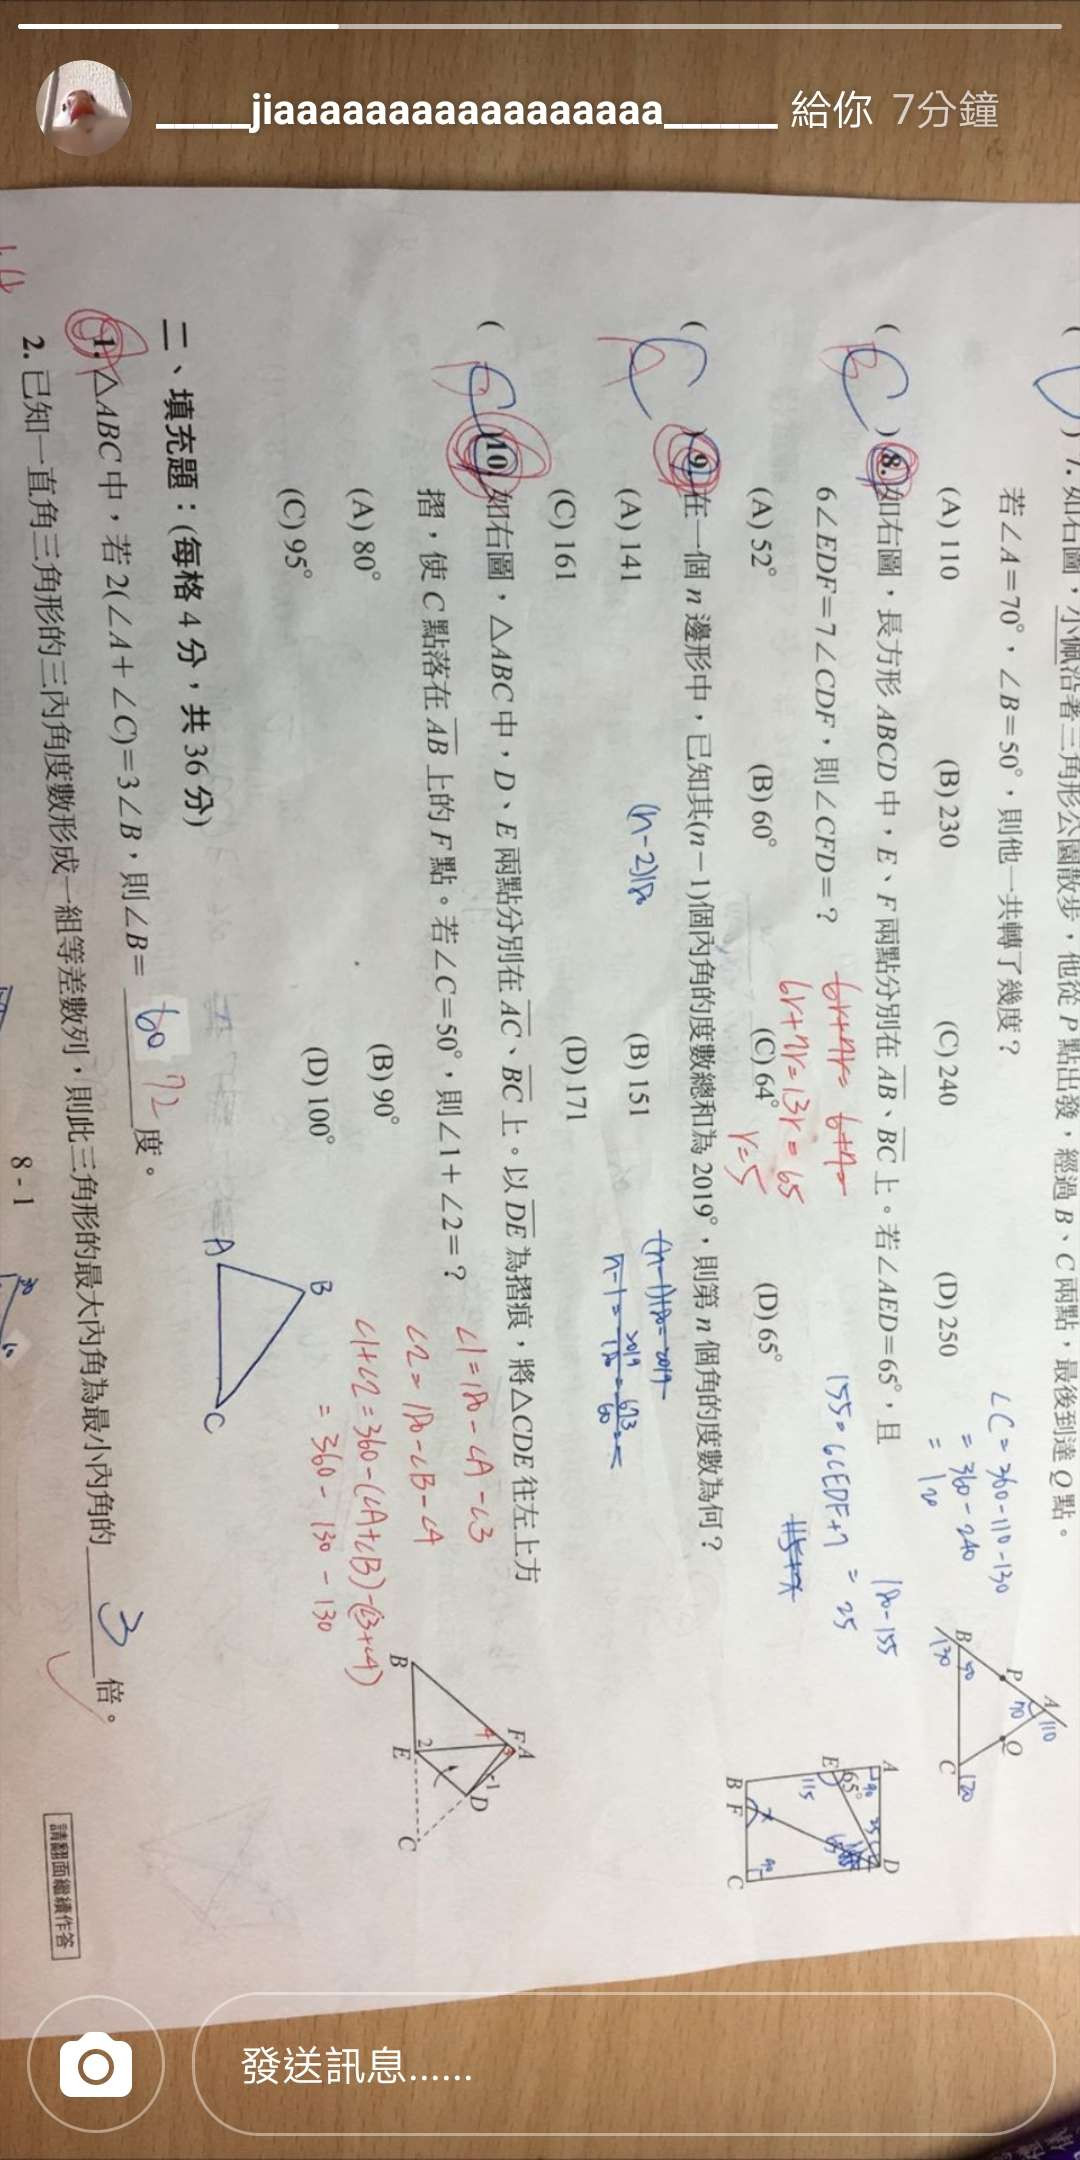 _____jiaaaaaaaaaaaaaaaaa______ 給你 7分鐘
7. 如右圖，小佩沿著三角形公園散步，他從 P 點出發，經過 B、C 兩點，最後到達 Q 點。
若∠A=70°，∠B=50°，則他一共轉了幾度？
(A) 110 (B) 230 (C) 240 (D) 250
∠C = 360-110-130
= 360-240
= 120
A 110
70
P Q
B 50 C 120
130
( C B ) 8. 如右圖，長方形 ABCD 中，E、F 兩點分別在 AB、BC 上。若∠AED=65°，且
6∠EDF=7∠CDF，則∠CFD=？
(A) 52° (B) 60° (C) 64° (D) 65°
6r+7r=13r=65
r=5
180-155
= 25
A D
90 25
65°
E
115
B F C
90
( C A ) 9. 在一個 n 邊形中，已知其(n－1)個內角的度數總和為 2019°，則第 n 個角的度數為何？
(A) 141 (B) 151
(C) 161 (D) 171
(n-2)180
(n-1)180=2019
( C ) 10. 如右圖，△ABC 中，D、E 兩點分別在 AC、BC 上。以 DE 為摺痕，將△CDE 往左上方
摺，使 C 點落在 AB 上的 F 點。若∠C=50°，則∠1+∠2=？
(A) 80° (B) 90°
(C) 95° (D) 100°
∠1=180-∠A-∠3
∠2=180-∠B-∠4
∠1+∠2=360-(∠A+∠B)-(∠3+∠4)
= 360-130-130
F A
4 3
1 D
2
B E C
二、填充題：(每格 4 分，共 36 分)
1. △ABC 中，若 2(∠A+∠C)=3∠B，則∠B= 60 72 度。
B
A C
2. 已知一直角三角形的三內角度數形成一組等差數列，則此三角形的最大內角為最小內角的 3 倍。
8 - 1
請翻面繼續作答
發送訊息......